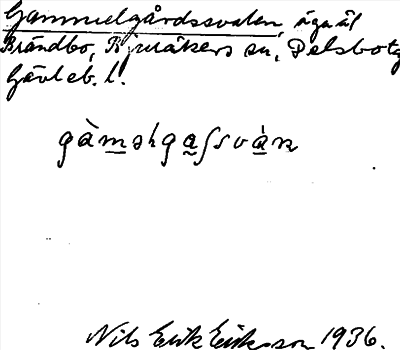 Gammelgårdssvalen, ägu äl
Brändbo, Bjuråkers sn, Delsbo tg
Gävleb. l.
gàməlgaʃsvàn
Nils Erik Eriksson 1936.